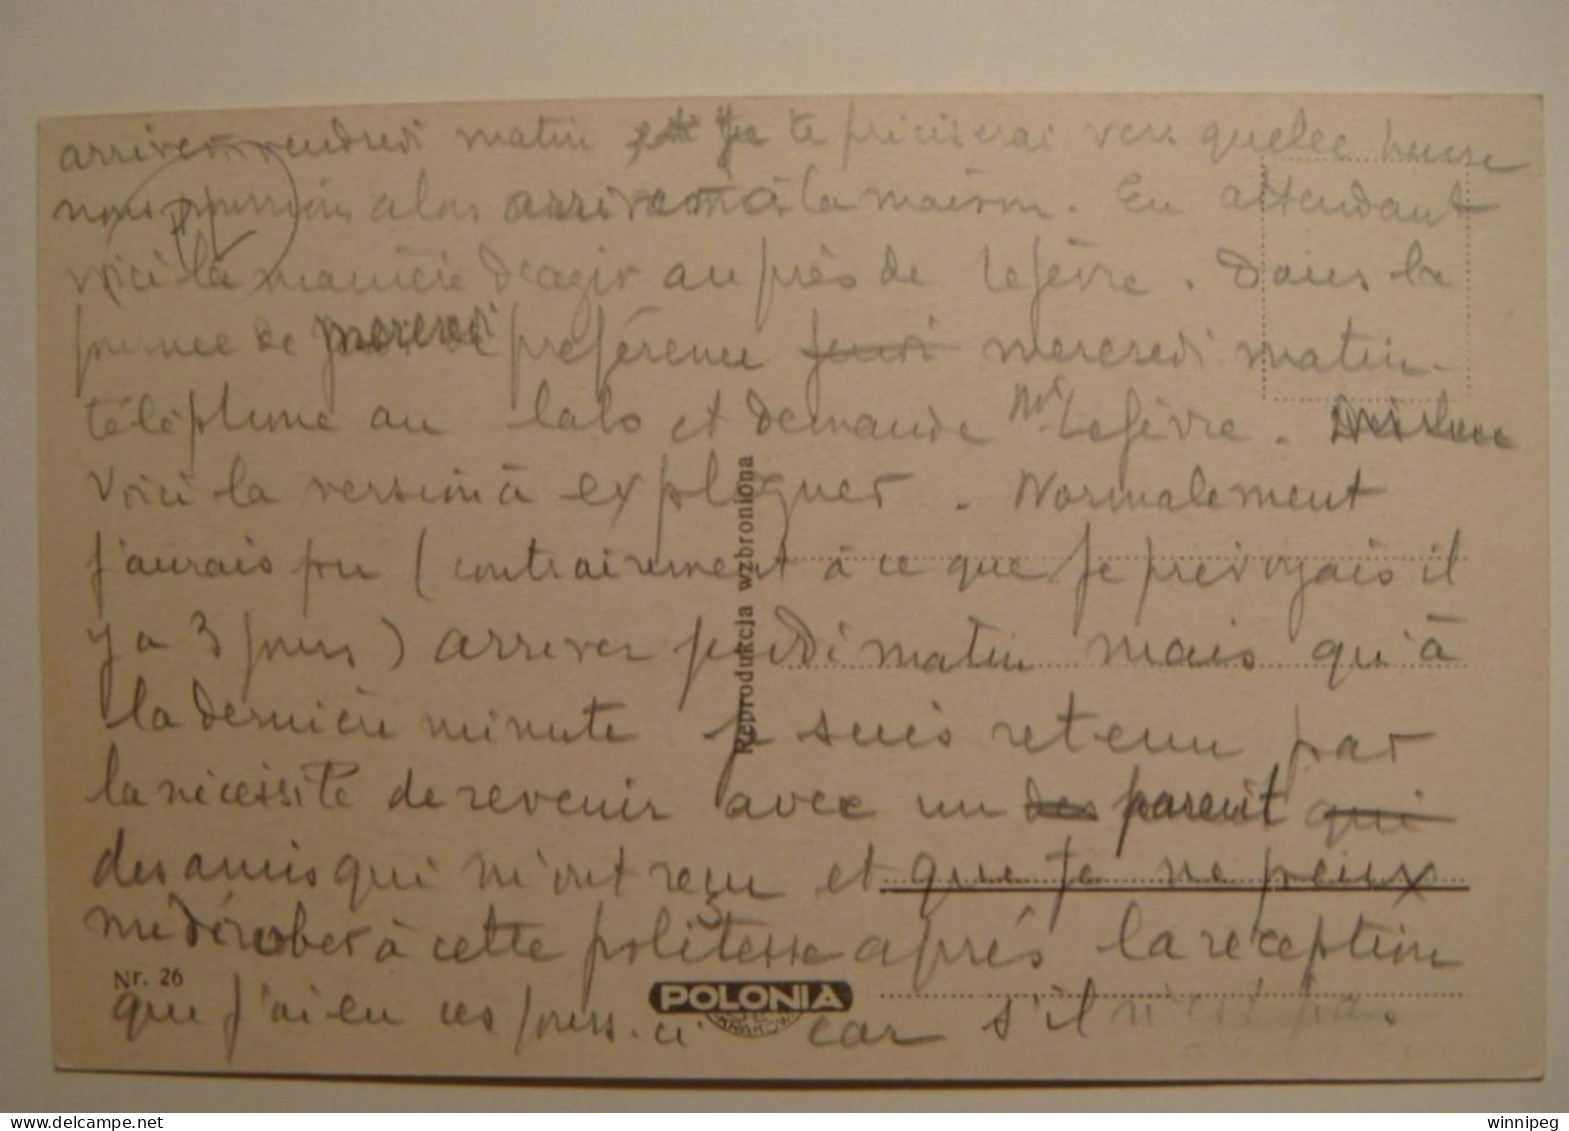 arriverons vendredi matin Je te préciserai vers quelle heure
nous pourrions alors arriver à la maison. En attendant
voici la manière d'agir auprès de Lefèvre. Dans la
journée de mercredi préférence jeudi mercredi matin
téléphone au labo et demande Mr Lefèvre.
Voici la version à expliquer. Normalement
j'aurais pu (contrairement à ce que je prévoyais il
y a 3 jours) arriver jeudi matin mais qu'à
la dernière minute je suis retenu par
la nécessité de revenir avec un des parent qui
des amis qui m'ont reçu et que je ne peux
me dérober à cette politesse après la réception
que j'ai eu ces jours-ci car s'il n'est pas
Reprodukcja wzbroniona
Nr. 26
POLONIA
KRAKÓW
winnipeg
delcampe.net